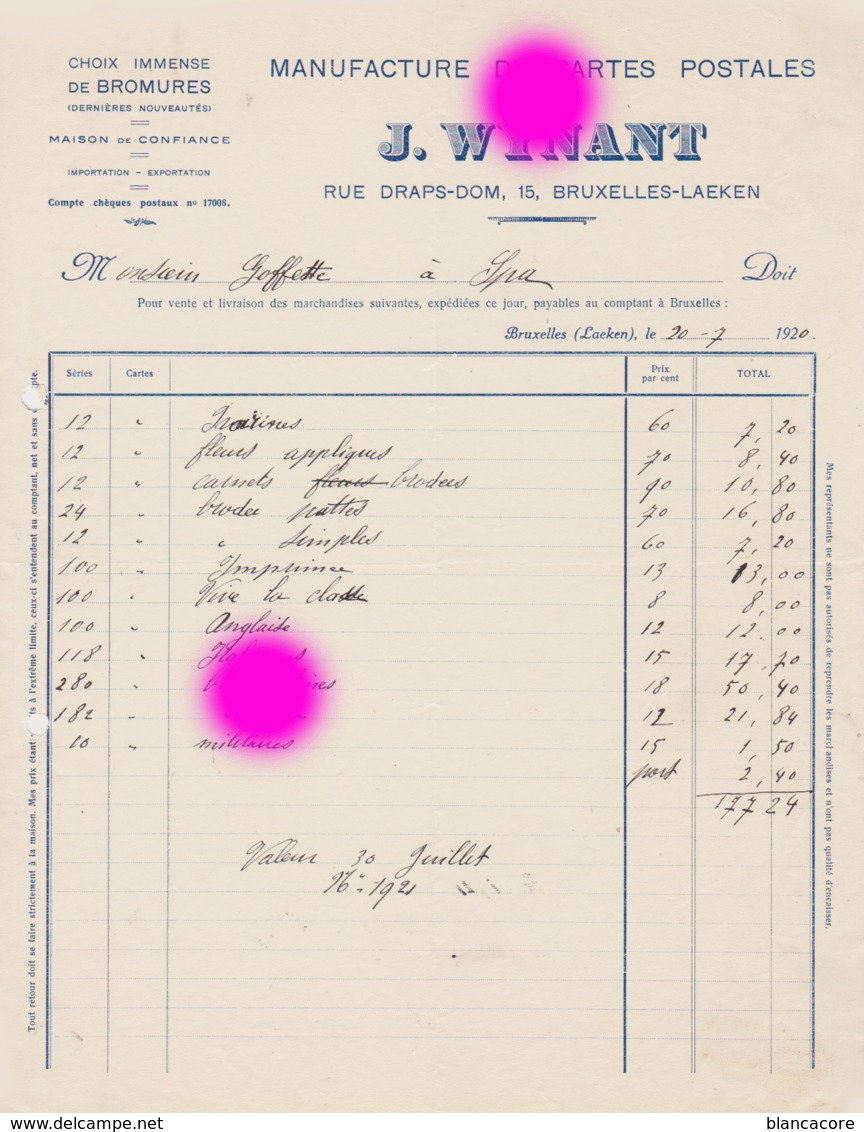 CHOIX IMMENSE
DE BROMURES
(DERNIÈRES NOUVEAUTÉS)
MAISON DE CONFIANCE
IMPORTATION - EXPORTATION
Compte chèques postaux nº 17006.
MANUFACTURE CARTES POSTALES
J. WYNANT
RUE DRAPS-DOM, 15, BRUXELLES-LAEKEN
Monsieur Goffette à Spa Doit
Pour vente et livraison des marchandises suivantes, expédiées ce jour, payables au comptant à Bruxelles :
Bruxelles (Laeken), le 20-7 1920.
Séries Cartes Prix par cent TOTAL
12 " 60 7,20
12 " fleurs appliques 70 8,40
12 " carnets fleurs brodees 90 10,80
24 " brodee pattes 70 16,80
12 " " simples 60 7,20
100 " Imprimee 13 13,00
100 " Vive la classe 8 8,00
100 " Anglaise 12 12.00
118 " 15 17,70
280 " 18 50,40
182 " 12 21,84
10 " militaires 15 1,50
port 2,40
177 24
Valeur 30 Juillet
Nº 1921
Tout retour doit se faire strictement à la maison. Mes prix étant à l'extrême limite, ceux-ci s'entendent au comptant, net et sans
Mes représentants ne sont pas autorisés de reprendre les marchandises et n'ont pas qualité d'encaisser.
delcampe.net
blancacore